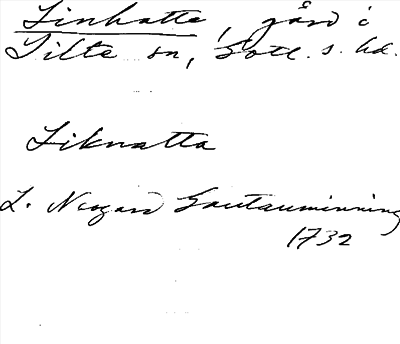 Linhatte, gård i
Silte sn, Gotl. s. hd.
Liknatta
L. Neogard Gautauminning
1732